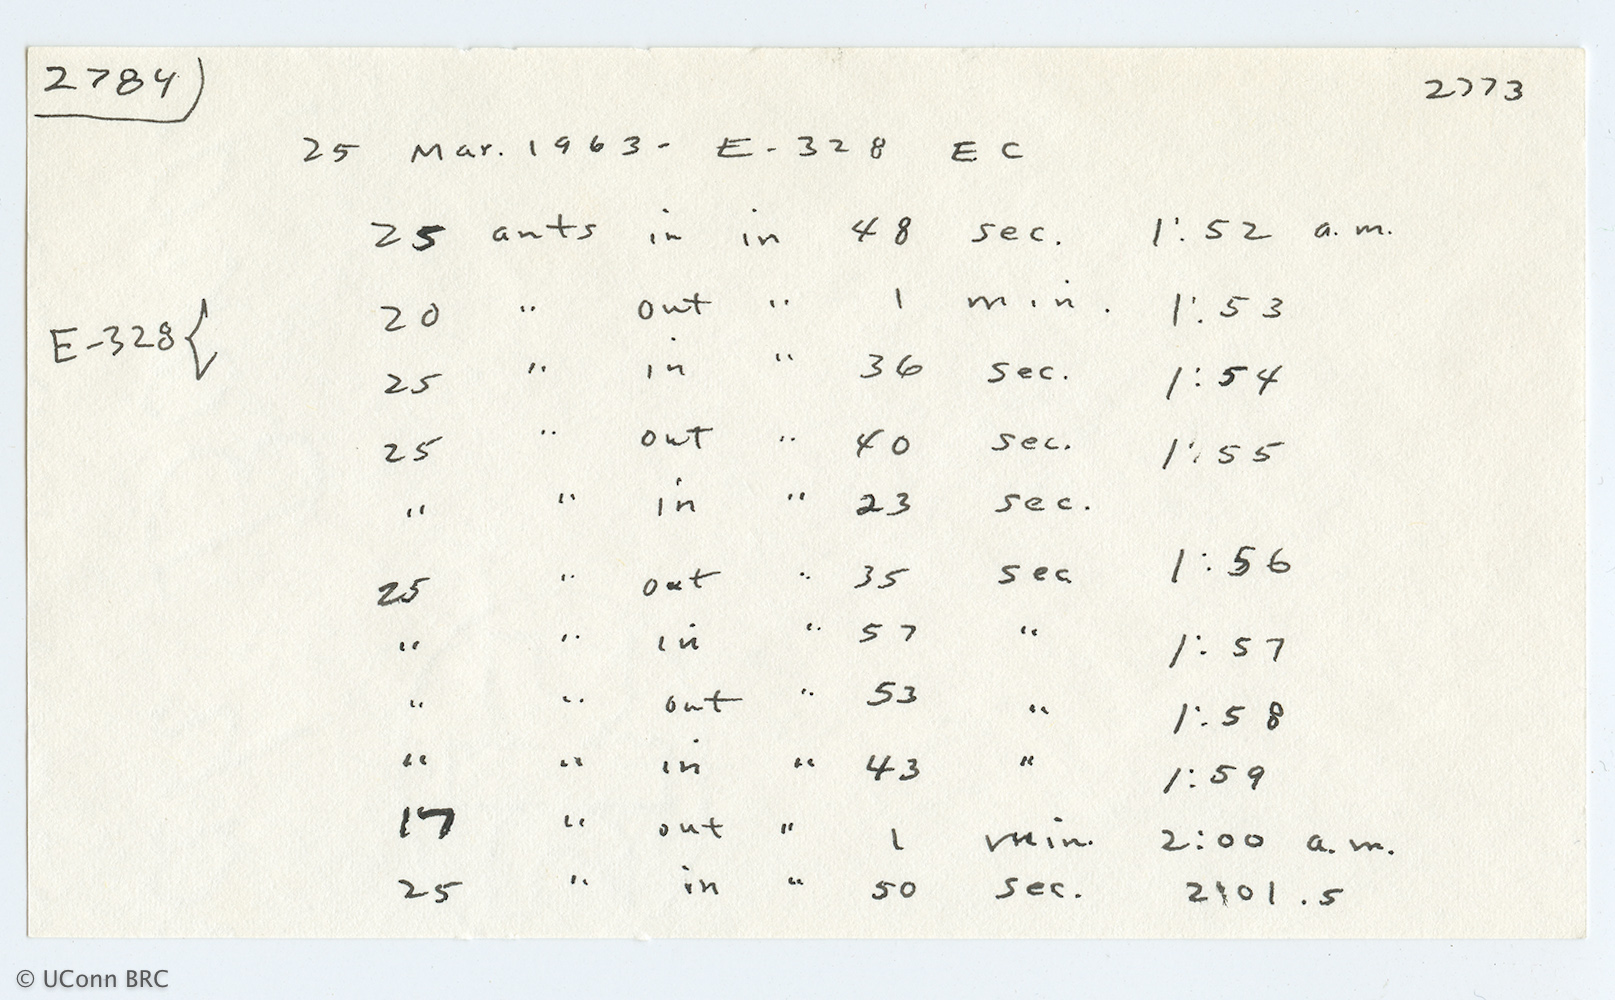 2784 2773
25 Mar. 1963 - E-328 EC
25 ants in in 48 sec. 1:52 a.m.
20 " out " 1 min. 1:53
E-328{
25 " in " 36 sec. 1:54
25 " out " 40 sec. 1:55
" " in " 23 sec.
25 " out " 35 sec 1:56
" " in " 57 " 1:57
" " out " 53 " 1:58
" " in " 43 " 1:59
17 " out " 1 min. 2:00 a.m.
25 " in " 50 sec. 2:01.5
© UConn BRC